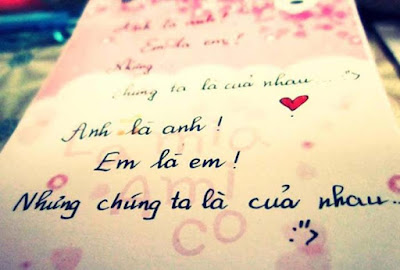 Anh là anh !
Em là em !
Nhưng
chúng ta là của nhau... :">
Anh là anh !
Em là em !
Nhưng chúng ta là của nhau...
:">
Ami
co